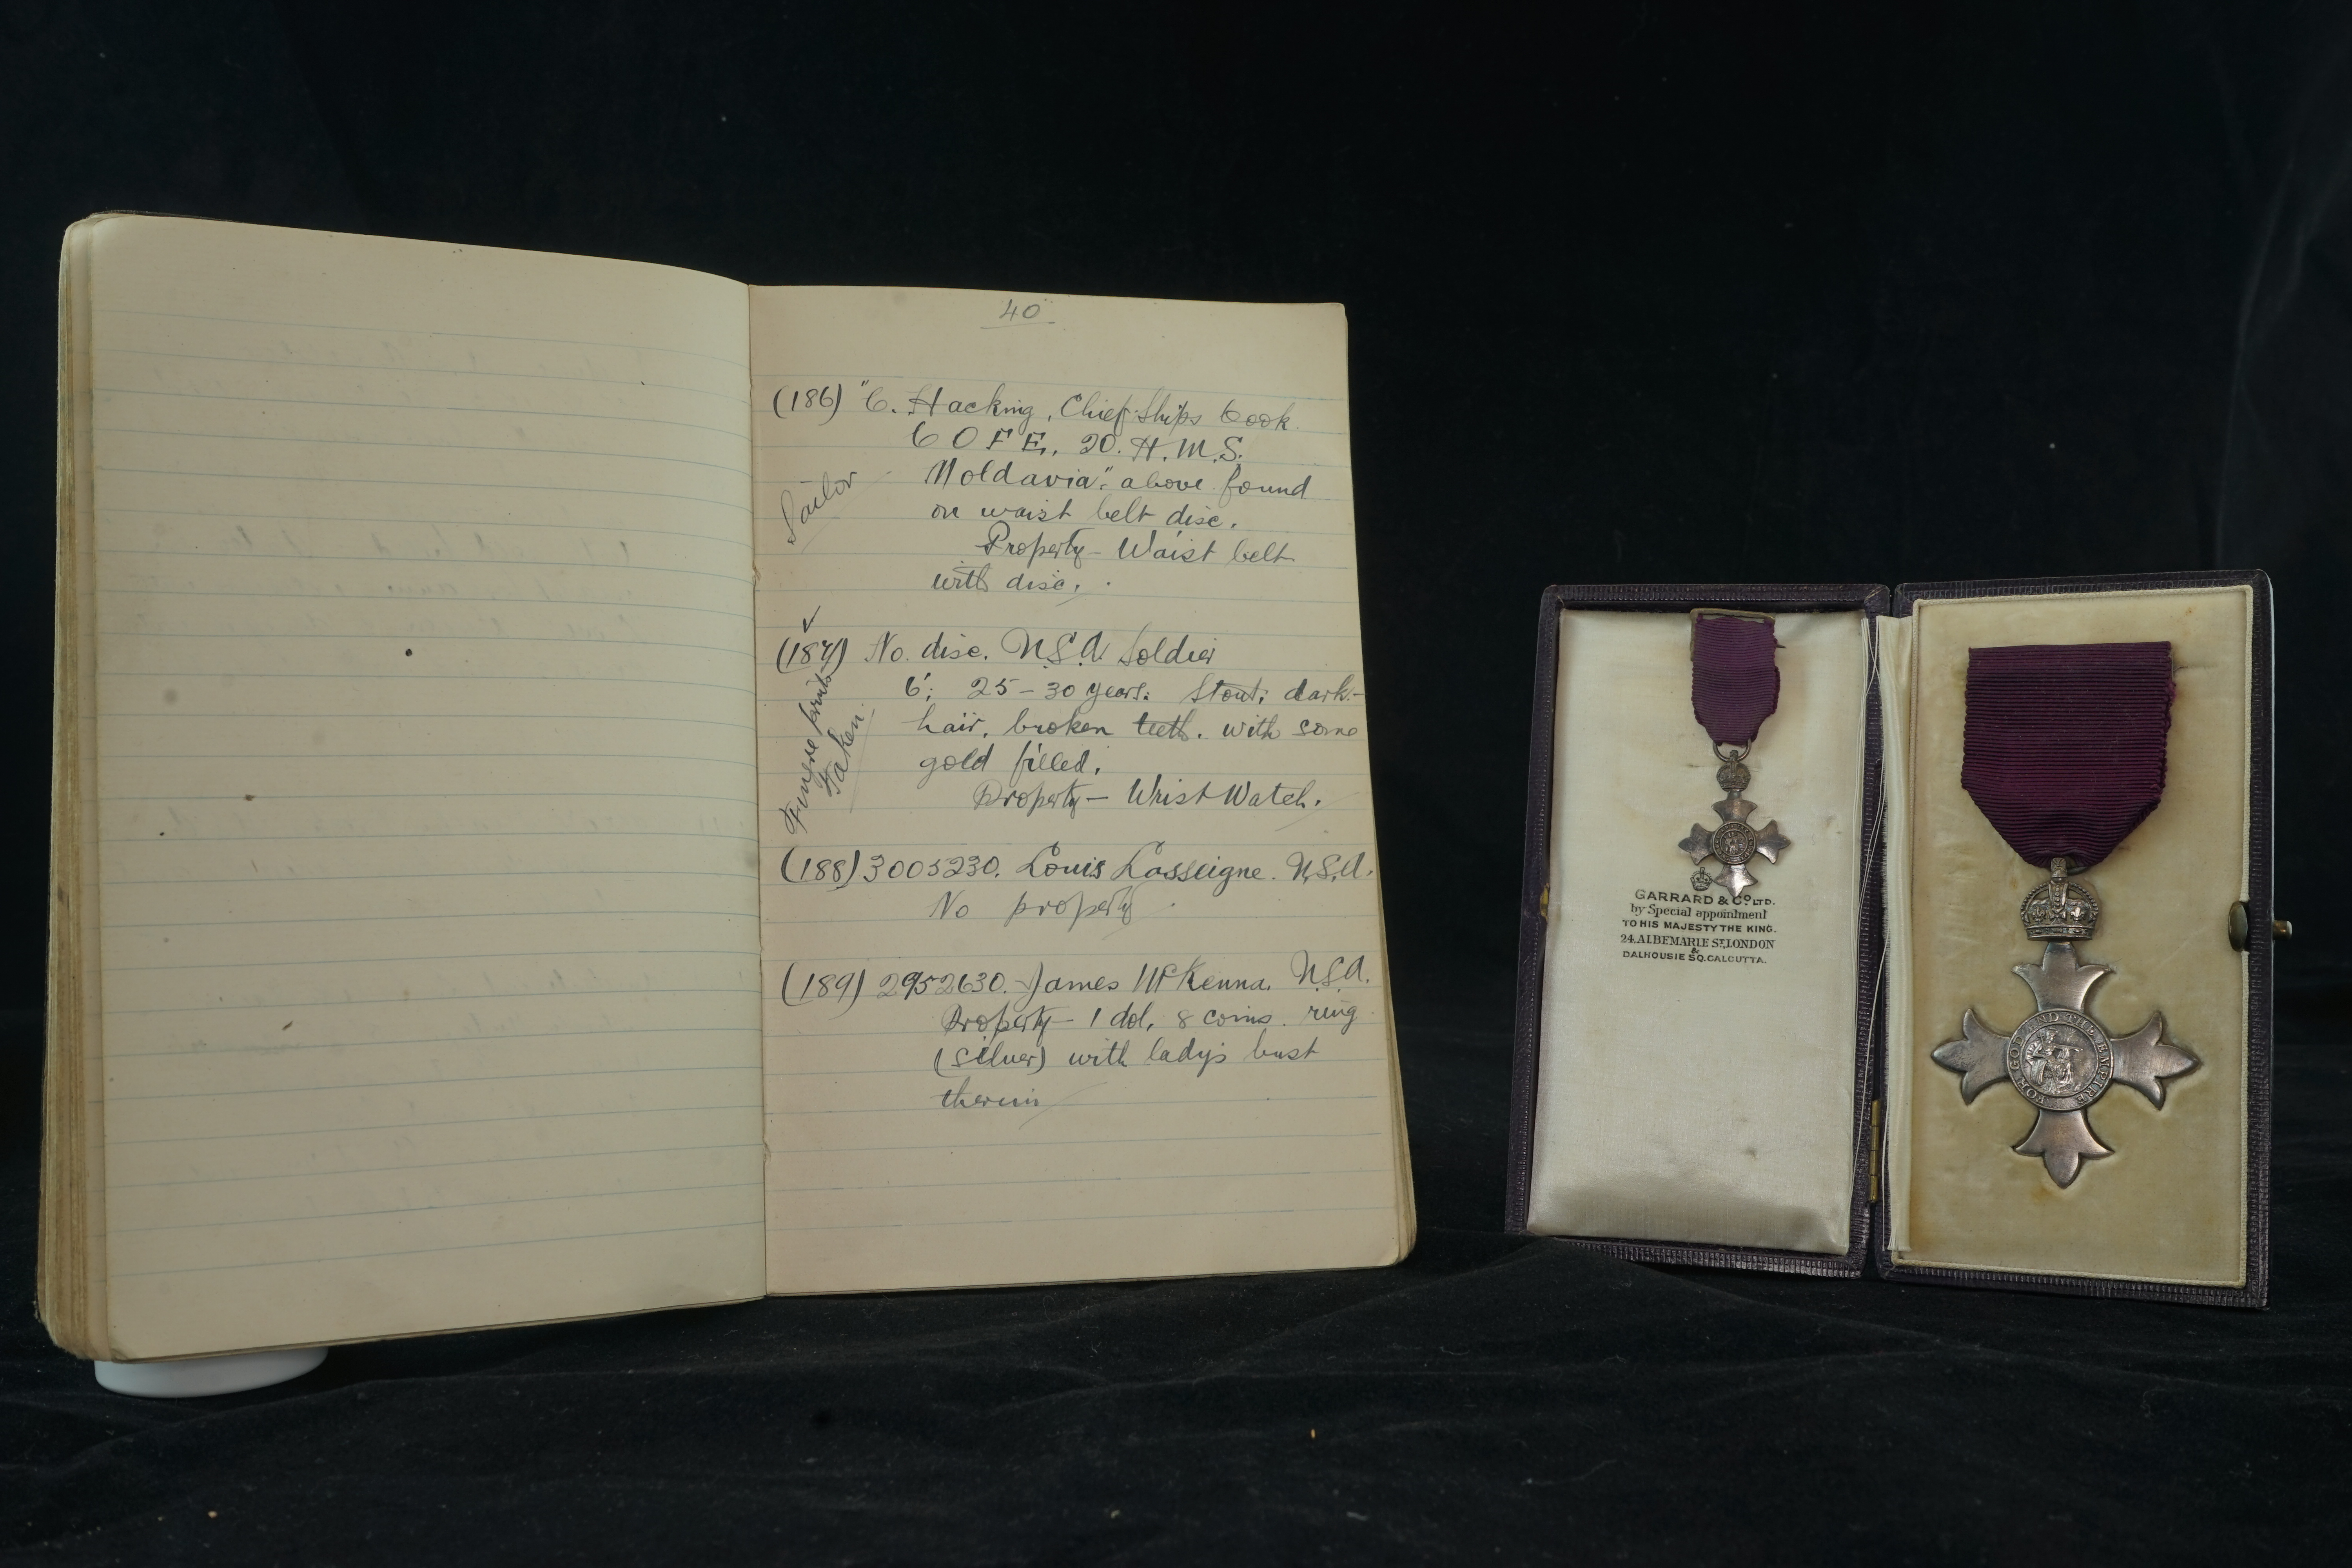 40
(186) "C. Hacking, Chief Ships Cook
C OF E, 20. H.M.S.
Moldavia". above found
on waist belt disc.
Property - Waist belt
with disc.
Sailor
(187) No disc. U.S.A. Soldier
6'; 25 - 30 years; Stout; dark
hair, broken teeth. with some
gold filled.
Property - Wrist Watch.
Finger prints
Taken.
(188) 3005230. Louis Lasseigne. U.S.A.
No property
(189) 2952630. James McKenna. U.S.A.
Property - 1 dol, 8 coins. ring
(silver) with lady's bust
therein
GARRARD & CO. LTD.
by Special appointment
TO HIS MAJESTY THE KING.
24 ALBEMARLE ST. LONDON
&
DALHOUSIE SQ. CALCUTTA.
FOR GOD AND THE EMPIRE